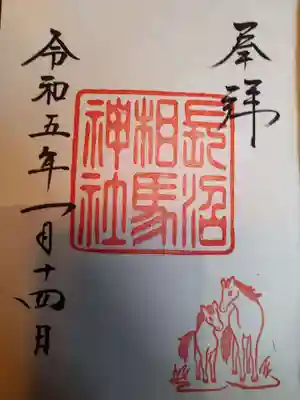 奉拝
長沼
相馬
神社
令和五年一月十四日